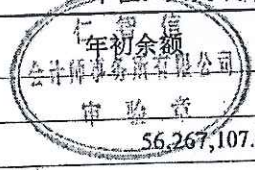 仁智信
年初余额
会计师事务所有限公司
审验章
56,267,107.